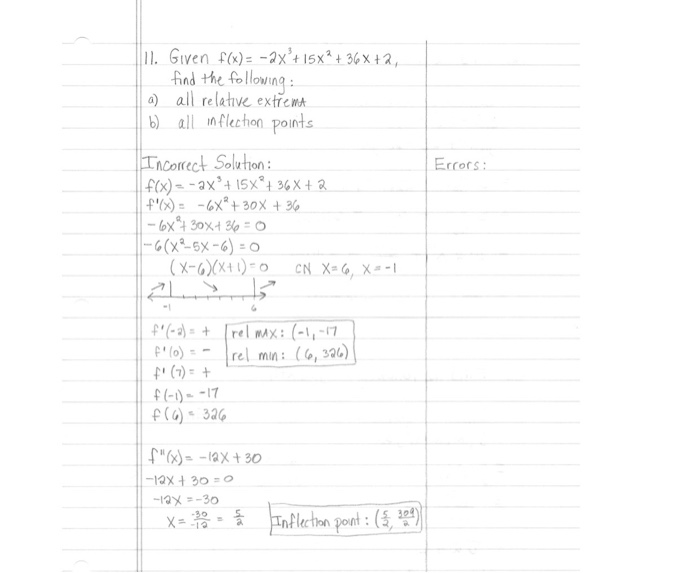 11. Given f(x) = -2x³ + 15x² + 36x + 2,
find the following:
a) all relative extrema
b) all inflection points
Incorrect Solution:
Errors:
f(x) = -2x³ + 15x² + 36x + 2
f'(x) = -6x² + 30x + 36
-6x² + 30x + 36 = 0
-6(x² - 5x - 6) = 0
(x-6)(x+1) = 0 CN x=6, x=-1
-1 6
f'(-2) = + rel max: (-1, -17
f'(0) = - rel min: (6, 326)
f'(7) = +
f(-1) = -17
f(6) = 326
f"(x) = -12x + 30
-12x + 30 = 0
-12x = -30
x = -30/-12 = 5/2 Inflection point: (5/2, 309/2)